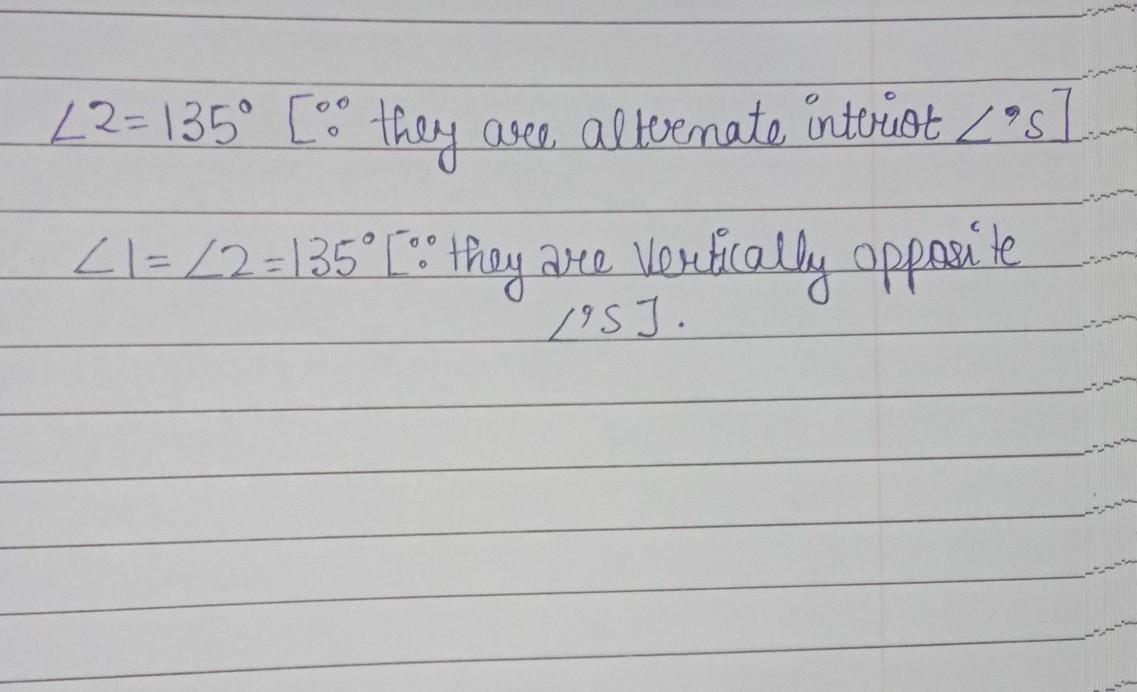 ∠2=135° [∵ they are alternate interiot ∠'s]
∠1=∠2=135° [∵ they are vertically opposite
∠'s].